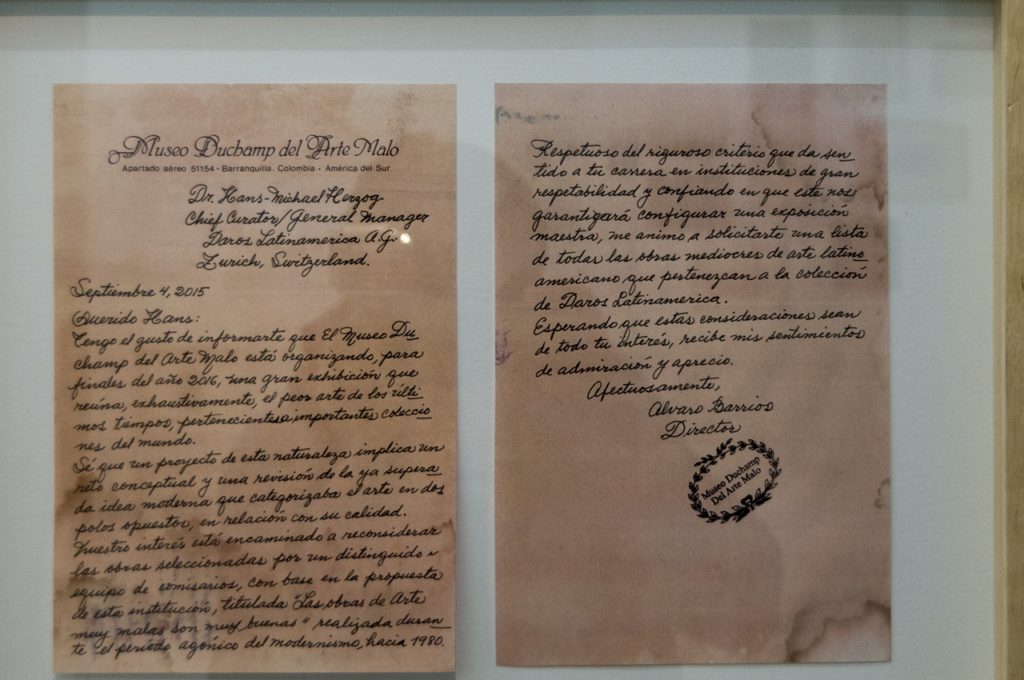 Museo Duchamp del Arte Malo
Apartado aéreo 51154 · Barranquilla, Colombia · América del Sur
Dr. Hans-Michael Herzog
Chief Curator/General Manager
Daros Latinamerica A.G.
Zurich, Switzerland.
Septiembre 4, 2015
Querido Hans:
Tengo el gusto de informarte que El Museo Du
champ del Arte Malo está organizando, para
finales del año 2016, una gran exhibición que
reúna, exhaustivamente, el peor arte de los últi
mos tiempos, pertenecientes a importantes coleccio
nes del mundo.
Sé que un proyecto de esta naturaleza implica un
reto conceptual y una revisión de la ya supera
da idea moderna que categorizaba el arte en dos
polos opuestos, en relación con su calidad.
Nuestro interés está encaminado a reconsiderar
las obras seleccionadas por un distinguido
equipo de comisarios, con base en la propuesta
de esta institución, titulada "Las obras de Arte
muy malas son muy buenas" realizada duran
te el período agónico del modernismo, hacia 1980.
Respetuoso del riguroso criterio que da sen
tido a tu carrera en instituciones de gran
respetabilidad y confiando en que este nos
garantizará configurar una exposición
maestra, me animo a solicitarte una lista
de todas las obras mediocres de arte latino
americano que pertenezcan a la colección
de Daros Latinamerica.
Esperando que estas consideraciones sean
de todo tu interés, recibe mis sentimientos
de admiración y aprecio.
Afectuosamente,
Alvaro Barrios
Director
Museo Duchamp
Del Arte Malo